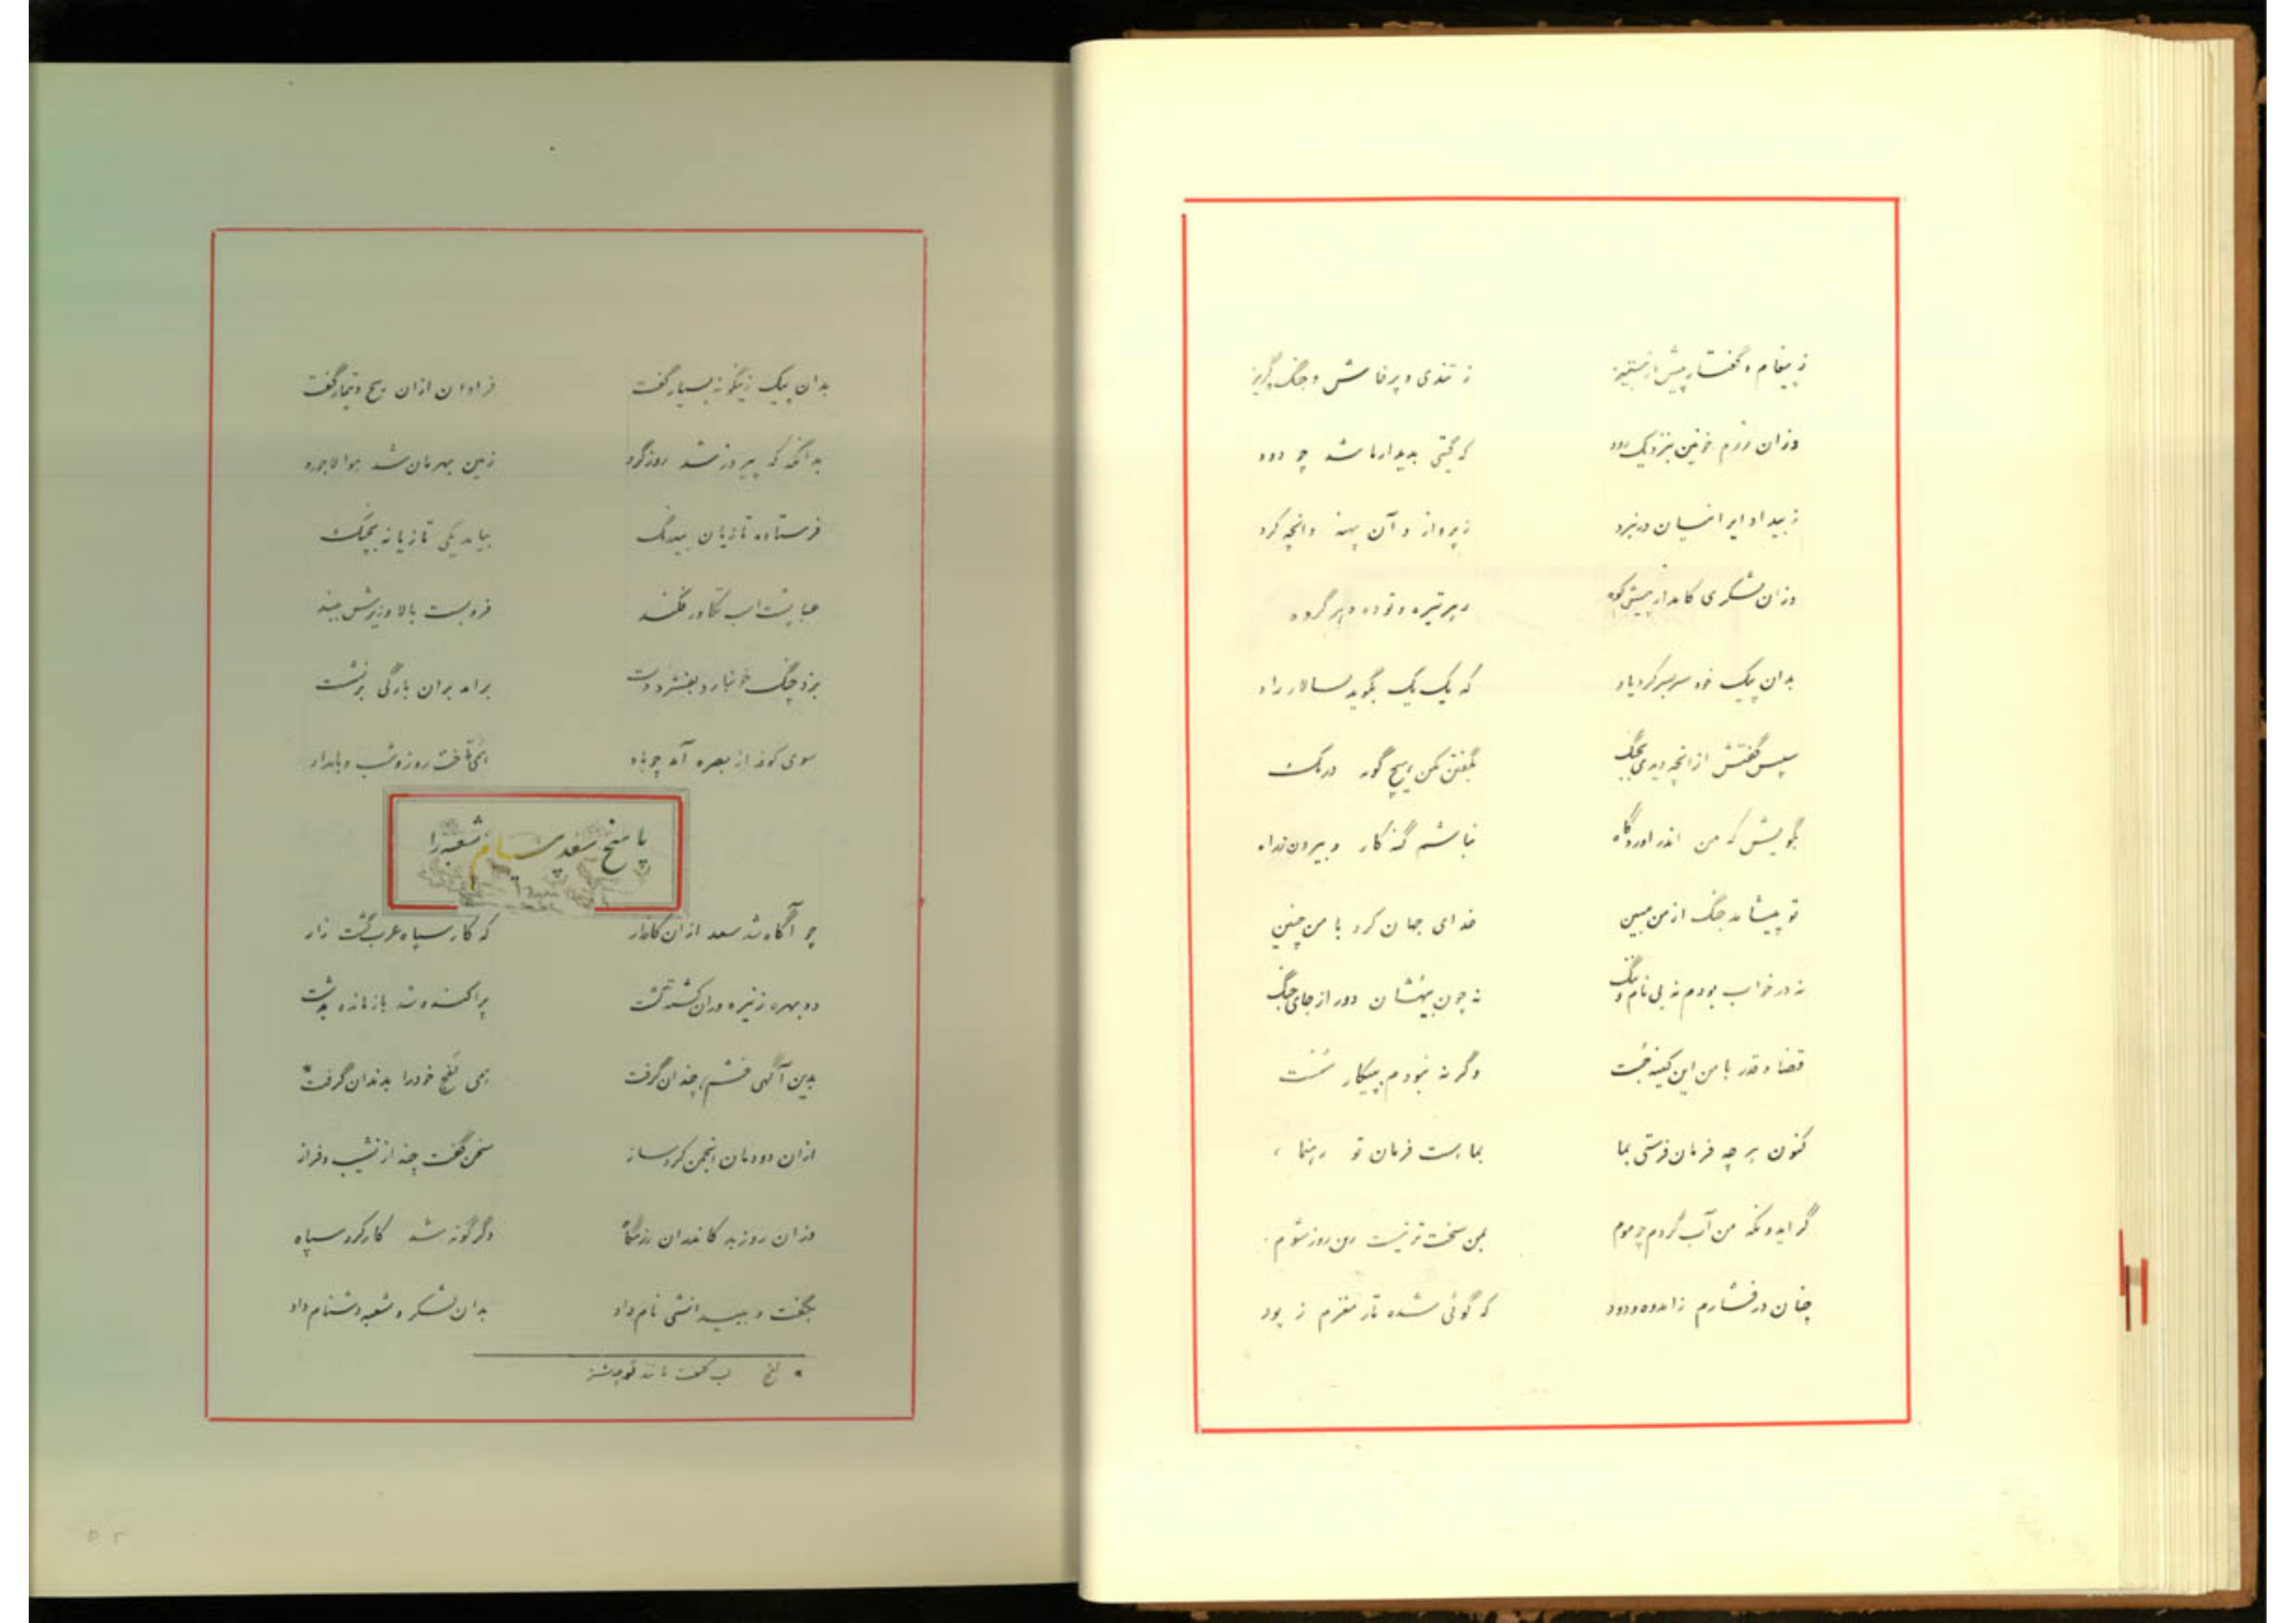 ز پیغام و گفتار پیش از ستیز ز تندی و پرخاش و جنگ و گریز
وزان رزم خونین بنزدیک رود که گیتی بدیدار ما شد چو دود
ز بیداد ایرانیان در نبرد ز پرواز و آن پهنه وانچه کرد
وزان لشکری کامد از پیش کوه بهر تیره و توده و هر گروه
بدان پیک خود سربسر کرد یاد که یک یک بگوید بسالار راد
سپس گفتش از انچه دیدی بجنگ بگفتن مکن هیچ گونه درنگ
بگویش که من اندر آوردگاه نباشم گنه کار و بیرون ز راه
تو پیشامد جنگ از من مبین خدای جهان کرد با من چنین
نه در خواب بودم نه بی نام و ننگ نه چون بیهشان دور از جای جنگ
قضا و قدر با من این کینه جست وگرنه نبودم بپیکار سست
کنون هر چه فرمان فرستی بما بما هست فرمان تو رهنما
گر ایدونکه من آب گردم چو موم بمن سخت تر نیست زین روز شوم
چنان در فشارم ز اندوه و دود که گوئی شده تار مغزم ز پود
بدان پیک زینگونه بسیار گفت فراوان ازان رنج و تیمار گفت
بدانگه که پیروز شد روزگرد زمین بهرمان شد هوا لاجورد
فرستاده تازیان بیدرنگ بیامد یکی تازیانه بچنگ
عبا پشت اسب تکاور فکند فرو بست بالا و زیرش ببند
بزد چنگ خونبار و بفشرد دست برآمد بران بارگی برنشست
سوی کوفه از بصره آمد چو باد همی تاخت روز و شب و بامداد
پاسخ سعد پیام شعبه را
چو آگاه شد سعد ازان کارزار که کار سپاه عرب گشت زار
دو بهره ز تیره وران کشته گشت پراکنده شد بازمانده بدشت
بدین آگهی خشم چندان گرفت همی لفج خود را بدندان گرفت*
ازان دودمان انجمن کرد ساز سخن گفت چند از نشیب و فراز
وزان روز بد کاندران رزمگاه دگرگونه شد کارکرد سپاه
بگفت و ببیدانشی نام داد بدان لشکر و شعبه دشنام داد
* لفج لب کلفت مانند شتر
۵۲